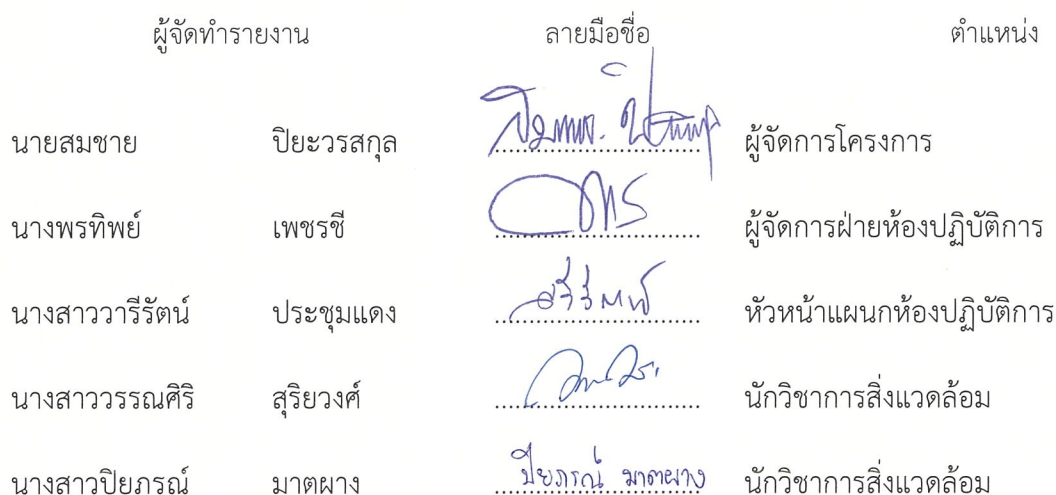 ผู้จัดทำรายงาน ลายมือชื่อ ตำแหน่ง
นายสมชาย ปิยะวรสกุล ผู้จัดการโครงการ
นางพรทิพย์ เพชรชี ผู้จัดการฝ่ายห้องปฏิบัติการ
นางสาววารีรัตน์ ประชุมแดง หัวหน้าแผนกห้องปฏิบัติการ
นางสาววรรณศิริ สุริยวงศ์ นักวิชาการสิ่งแวดล้อม
นางสาวปิยภรณ์ มาตผาง ปิยภรณ์ มาตผาง นักวิชาการสิ่งแวดล้อม